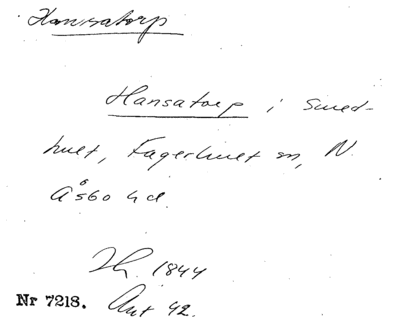 Hansatorp
Hansatorp i Smed-
hult, Fagerhult sn, N.
Åsbo hd.
Lh. 1844
Nr 7218. Ant 42.